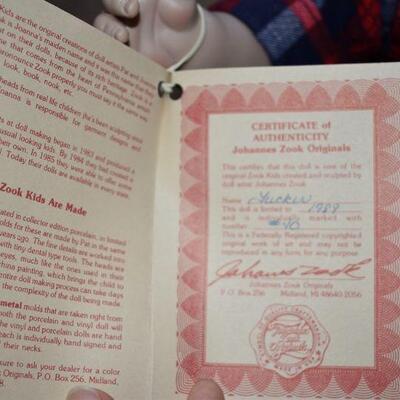 Kids are the original creations of doll artists Pat and
is Joanna's maiden name and was this name that
on their dolls, because of its heritage. Zook is a
name that comes from the heart of Pennsylvania
pronounce Zook properly you must say it the same way
look, book, nook, etc.
heads from real life children (he's been sculpting since
Joanna is responsible for garment designs and
at doll making began in 1983 and produced a
unusual looking kids. By 1984 they had created a
their own. In 1985 they were able to offer
Today their dolls are available in every state
Zook Kids Are Made
in collector edition porcelain, in limited
molds for these are made by Pat in the
years ago. The fine details are worked into
with tiny dental type tools. The heads are
eyes, much like the ones used in their
china painting, which brings the child to
entire doll making process can take days
the complexity of the doll being made
metal molds that are taken right from
both the porcelain and vinyl doll will
The vinyl and porcelain dolls are hand
each is individually, hand signed and
their necks.
sure to ask your dealer for a color
Originals, P.O. Box 256, Midland,
8.
CERTIFICATE of
AUTHENTICITY
Johannes Zook Originals
This certifies that this doll is one of the
original Zook Kids created and sculpted by
doll artist Johannes Zook
Name Tucker
This doll is limited to 1989
and is individually marked with
number #40
This is a Federally Registered copyrighted
original work of art and may not be
reproduced in any form, for any purpose.
Johannes Zook
Johannes Zook Originals
P.O. Box 256 Midland, MI 48640-2056